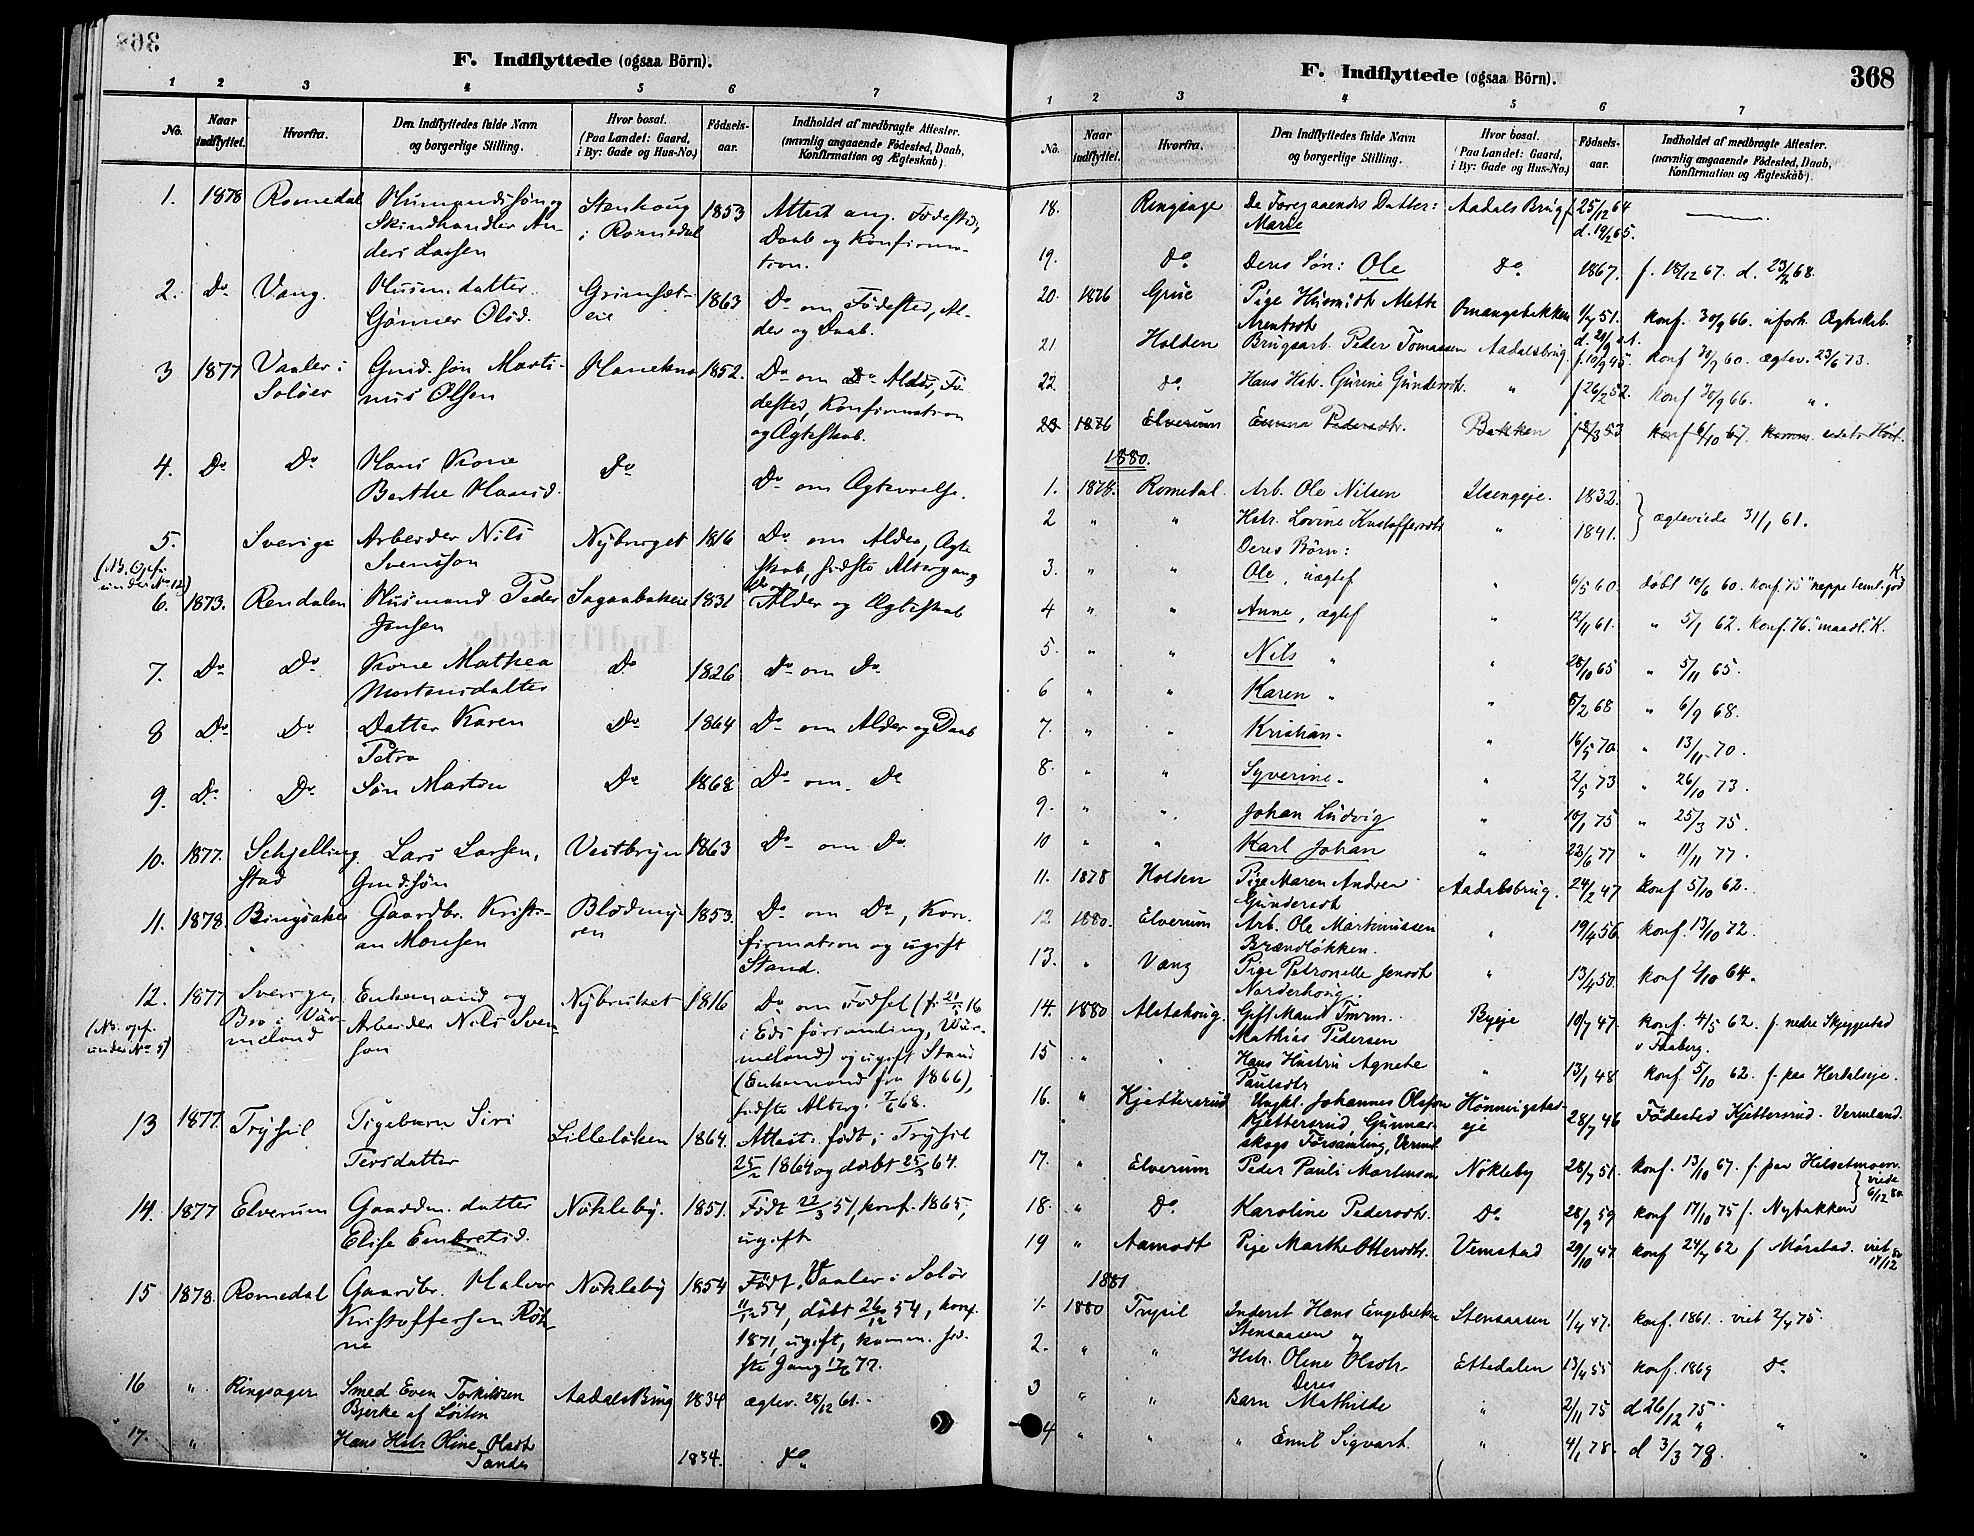 368
F. Indflyttede (ogsaa Börn).
1 2 3 4 5 6 7
No. Naar indflyttet. Hvorfra. Den Indflyttedes fulde Navn og borgerlige Stilling. Hvor bosat. (Paa Landet: Gaard, i By: Gade og Hus-No.) Födsels-aar. Indholdet af medbragte Attester. (navnlig angaaende Födested, Daab, Konfirmation og Ægteskab).
1. 1878 Romedal Husmandssøn og Stenhoug 1853 Attest ang. Fødested,
Skindhandler An- i Romedal Daab og Konfirma-
ders Larsen tion.
2. Do Vang. Husm. datter Grimset- 1863 Do om Fødested, Al-
Gunner Olsd. eie der og Daab.
3 1877 Vaaler i Gmd. søn Marti- 1852. Do om Alder, Fø-
Soløer nus Olsen dested, Konfirmation
og Ægteskab.
4. Do Do Hans Kone Do Do om Ægtevielse.
Berthe Hansd.
5. Sverige Arbeider Nils Nybruget 1816 Do om Alder, Ægte
Svensson skab, sidste Altergang
(NB. Opf. under No 12)
6. 1873. Rendalen Husmand Peder Sagaabakeie 1831 Alder og Ægteskab
Jensen
7. Do Do Kone Mathea Do 1826 Do om Do
Mortensdatter
8 Do Do Datter Karen Do 1864 Do om Alder og Daab
Petra
9. Do Do Søn Morten Do 1868 Do om Do
10. 1877. Schjelling Lars Larsen, Vestbryn 1863 Do om Do
stad Gmdssøn
11. 1878. Ringsaker Gaardbr. Kristi- 1853. Do om Do, Kon-
an Monsen firmation og ugift
Stand.
12. 1877 Sverige, Enkemand og Nybruket 1816 Do om Fødsel (f. 21/1 16
Bro i Vär- Arbeider Nils Sven- i Eds församling, Wär-
meland son meland) og ugift Stand
(NB. opf. under No 5) (Enkemand fra 1866),
sidste Alterg. 7/6 68.
13 1877. Trysil Pigebarn Siri Lilleløken 1864. Attest: født i Trysil
Persdatter 25/2 1864 og døbt 25/3 64.
14. 1877 Elverum Gaardm. datter Nøkleby. 1851. Født 22/3 51, konf. 1865,
Elise Embretsd. ugift
15 1878. Romedal Gaardbr. Halvor Nøkleby 1854 Født i Vaaler i Solør
Kristoffersen Røk- 11/12 54, døbt 26/12 54, konf.
ne 1871, ugift, komm. sid-
ste Gang 17/6 77.
16 " Ringsager Smed Even Torkildsen Aadals Brug 1834 ægtev. 28/12 61.
Bjerke af Løiten
17. " Hans Hstr. Oline Olsdt 1834. do
Tande
368
F. Indflyttede (ogsaa Börn).
1 2 3 4 5 6 7
No. Naar indflyttet. Hvorfra. Den Indflyttedes fulde Navn og borgerlige Stilling. Hvor bosat. (Paa Landet: Gaard, i By: Gade og Hus-No.) Födsels-aar. Indholdet af medbragte Attester. (navnlig angaaende Födested, Daab, Konfirmation og Ægteskab).
18. Ringsager De Foregaaendes Datter: Aadals Brug f. 25/12 64
Marie d. 19/2 65.
19. do Deres Søn: Ole do 1867. f. 18/12 67. d. 23/2 68.
20. 1876 Grue Pige Husmdtr. Mette 1/7 51. konf. 30/9 66. uforh. Ægteskab.
Arentsdtr
21 Holden Brugsarb. Peder Tomassen Aadalsbrug. f. 10/9 45. konf 30/9 60. ægtev. 23/6 73.
22. do. Hans Hstr. Gurine Gundersdtr. " f 26/2 52. konf 30/9 66. "
23 1876 Elverum Emma Pedersdtr. Bakken f 18/8 53 konf 6/10 67. komm. sidste Høst.
1880.
1. 1878. Romedal. Arb. Ole Nilsen Ilsengeje. 1832. ægteviede 31/1 61.
2 " " Hstr. Lovine Kristoffersdtr " 1841.
Deres Børn:
3. " " Ole, uægtef " 6/5 60. døbt 10/6 60. konf 75 "neppe temt. god K.
4 " " Anne, ægtef " 12/11 61. " 5/1 62. konf. 76. "maadl." K.
5. " " Nils " " 28/10 65 " 5/11 65.
6 " " Karen " " 8/2 68 " 6/9 68.
7. " " Kristian " " 16/5 70. " 13/11 70.
8. " " Syverine " " 2/5 73 " 26/10 73.
9. " " Johan Ludvig " 10/1 75 " 25/3 75.
10 " " Karl Johan " 22/6 77 " 11/11 77.
11. 1878 Holden Pige Maren Andrea Aadalsbrug. 24/2 47 konf 5/10 62.
Gundersdt
12. 1880. Elverum Arb. Ole Martinussen " 19/4 56. konf. 13/10 72.
Brændløkken.
13. " Vang Pige Petronelle Jensdtr " 13/4 50. konf 2/10 64.
Norderhoug.
14. 1880 Alstahoug. Gift Mand Tmrm. Byeje 10/7 47. konf. 4/5 62. f. nedre Skjeggestad
Mathias Pedersen v Faaberg.
15 " " Hans Hustru Agnete " 13/1 48 konf. 5/10 62. f. paa Herdalseje.
Paulsdtr
16. " Kjettersrud Ungkl. Johannes Olsson Hønningstad- 28/7 46 Fødested Kjettersrud. Vermland.
Kjettersrud, Gunnar- eje
skogs Församling, Verml.
17. " Elverum Peder Pauli Martinsen Nøkleby 28/7 51. konf. 13/10 67. f. paa Helsetmoen. viede 6/12 80
18. " Do Karoline Pedersdtr. Do 28/9 59 konf 17/10 75 f. Nybakken
19 " Aamodt Pige Marthe Ottersdtr. Vemstad 29/10 47 konf 24/7 62 f Mørstad. viet 17/12 80
1881
1. 1880 Trysil Inderst Hans Engebretsen Stensaasen 1/4 47. konf. 1861. viet 2/4 75.
Stensaasen og
2. " " Hstr. Oline Olsdtr. Ettedalen 13/4 55 konf. 1869 Do
Deres
3 " " Barn Mathilde " 2/11 75 d 26/12 75.
4 " " " Emil Sigvart. " 4/1 78. d 3/3 78.